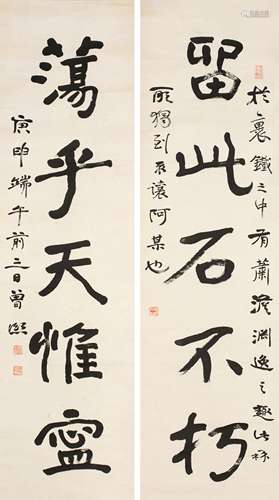 於裹鐵之中有蕭澹淵逸之趣此
留此石不朽
獨到 讓阿某也
蕩乎天惟寧
庚申端午前三日曾熙